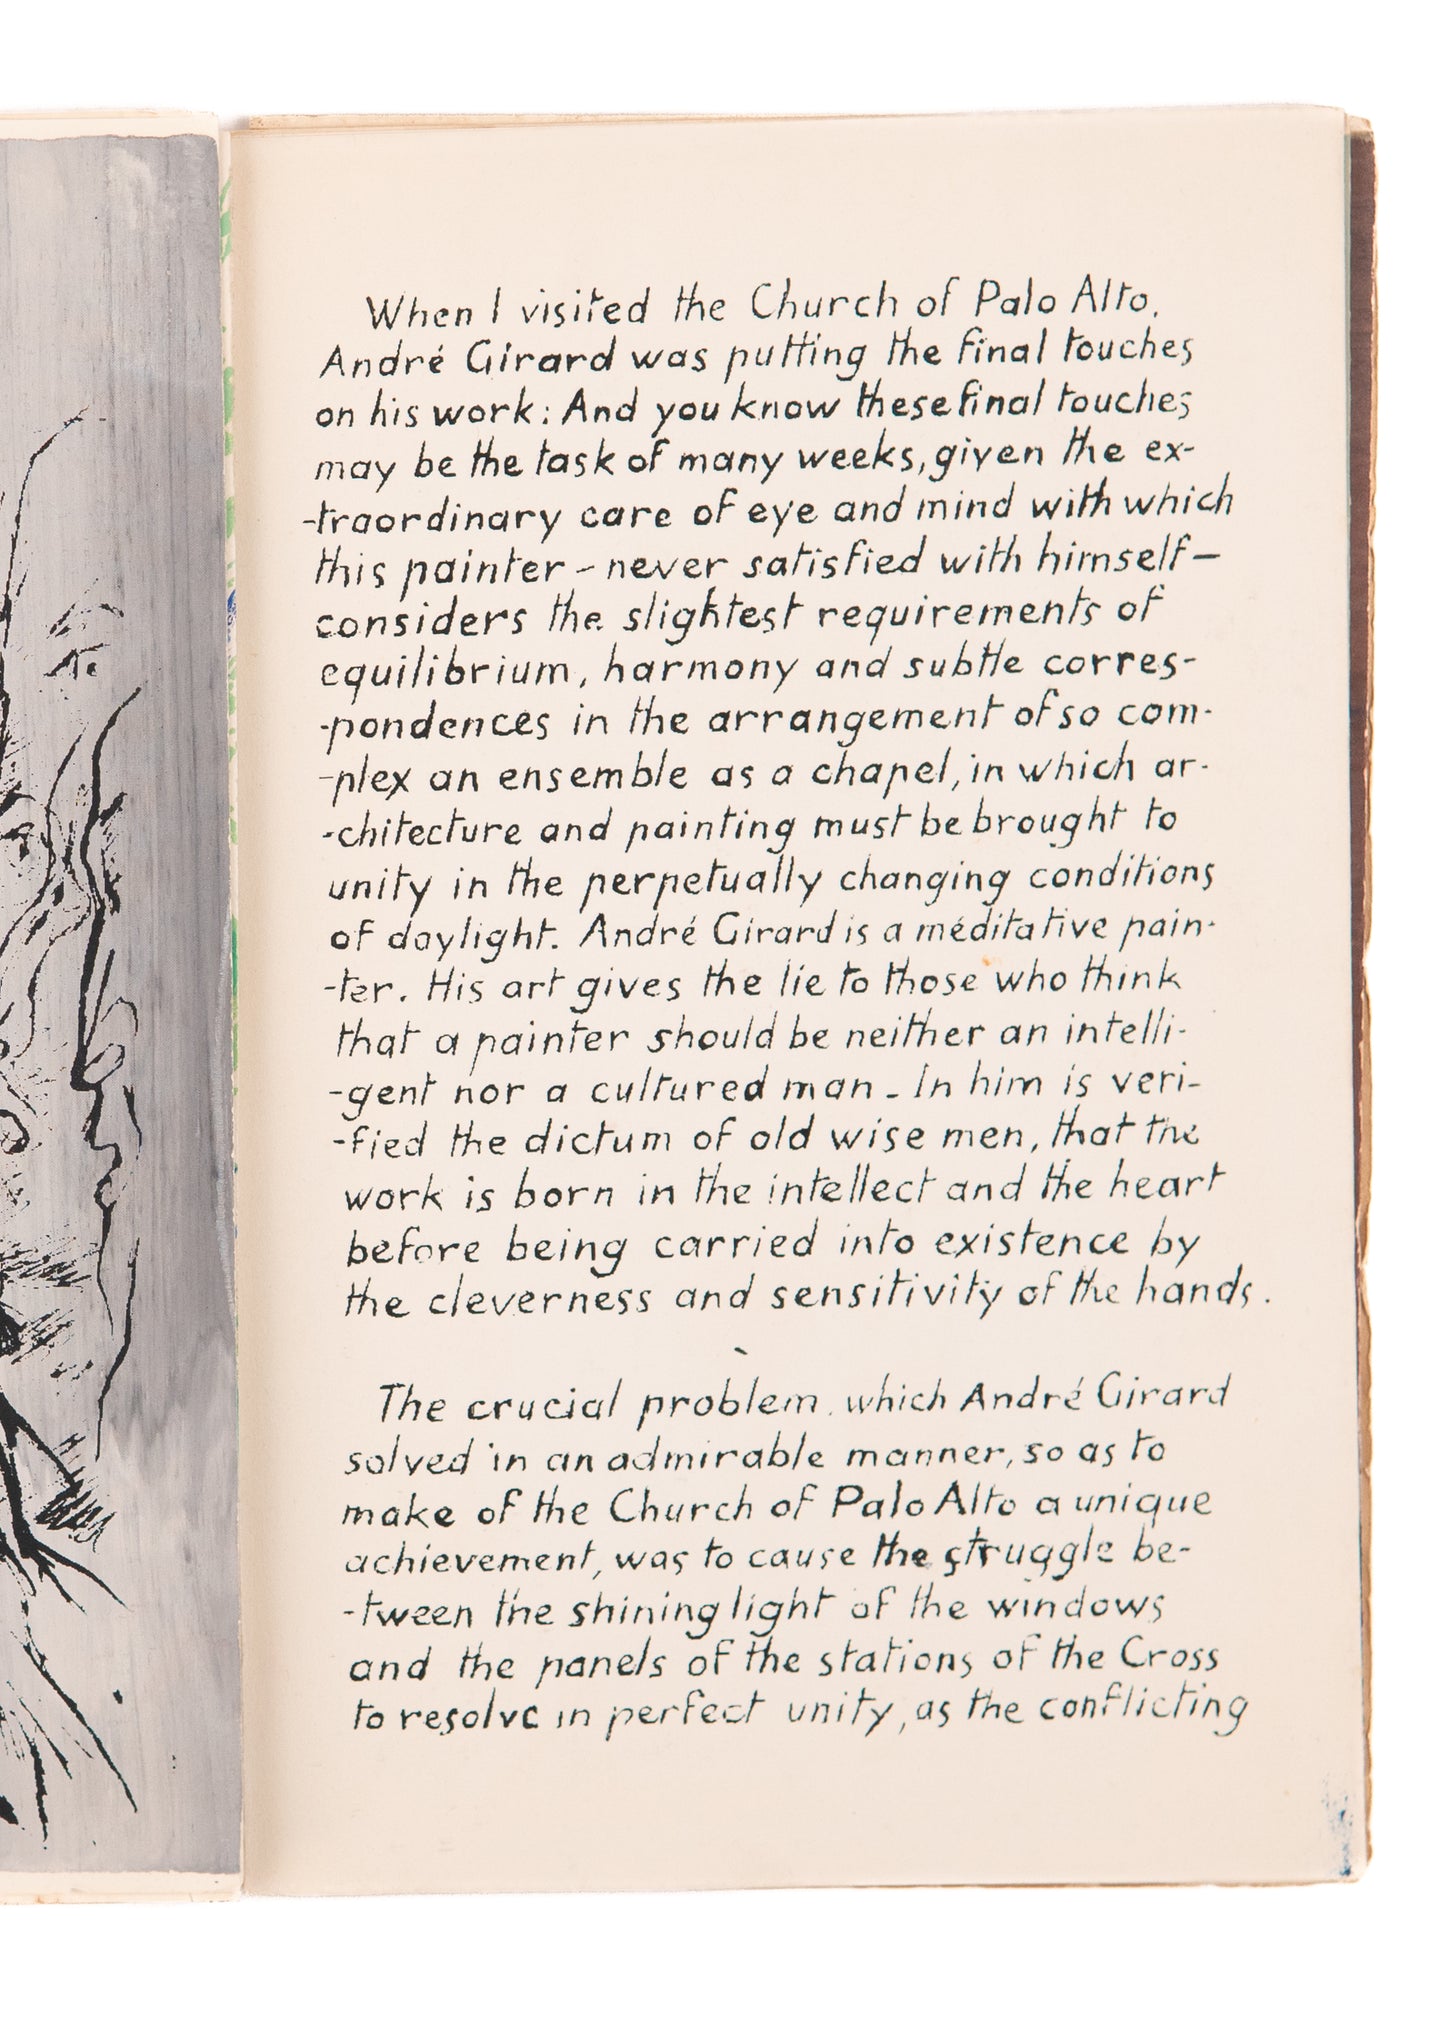 When I visited the Church of Palo Alto,
André Girard was putting the final touches
on his work: And you know these final touches
may be the task of many weeks, given the ex-
-traordinary care of eye and mind with which
this painter - never satisfied with himself –
considers the slightest requirements of
equilibrium, harmony and subtle corres-
-pondences in the arrangement of so com-
-plex an ensemble as a chapel, in which ar-
-chitecture and painting must be brought to
unity in the perpetually changing conditions
of daylight. André Girard is a méditative pain-
-ter. His art gives the lie to those who think
that a painter should be neither an intelli-
-gent nor a cultured man - In him is veri-
-fied the dictum of old wise men, that the
work is born in the intellect and the heart
before being carried into existence by
the cleverness and sensitivity of the hands.
The crucial problem, which André Girard
solved in an admirable manner, so as to
make of the Church of Palo Alto a unique
achievement, was to cause the struggle be-
-tween the shining light of the windows
and the panels of the stations of the Cross
to resolve in perfect unity, as the conflicting